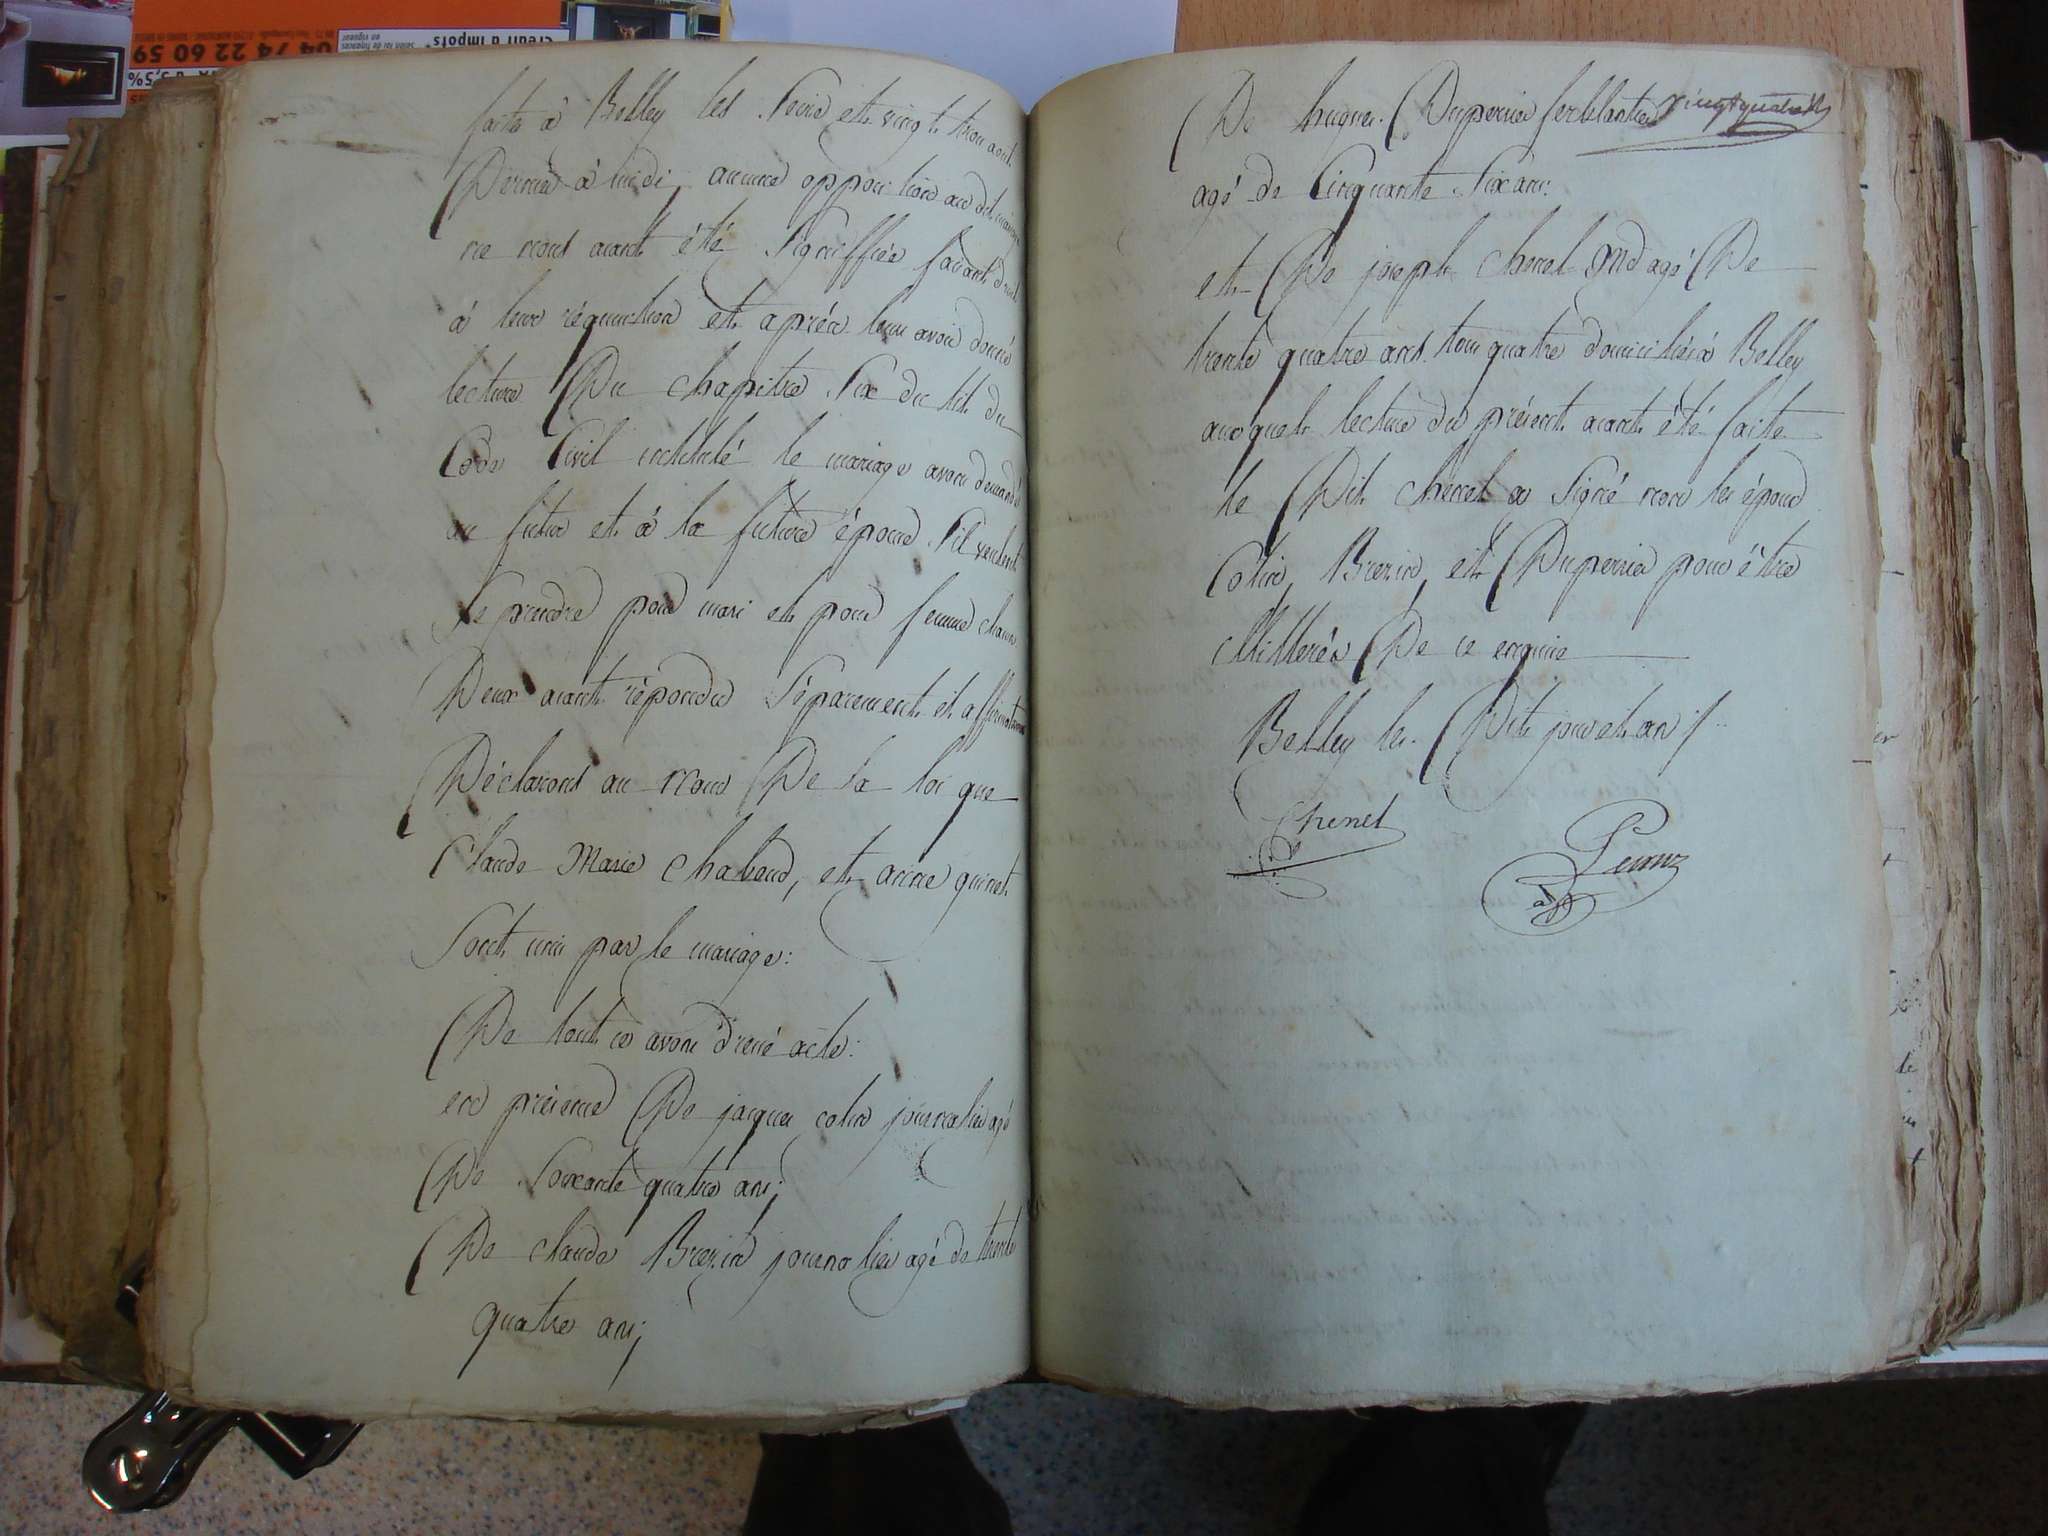 04 74 22 60 59
Crédit d'impôts*
selon loi de finances
en vigueur
5,5%
faite à Belley les Seize et vingt trois aout
Dernier à midi, aucune opposition au dit mariage
ne nous aiant été Signiffiée faisant droit
à leur réquisition et après leur avoir donné
lecture Du chapitre Six du tit. du
Code Civil intitulé le mariage avons demandé
au futur et à la future épouse S'il veulent
Se prendre pour mari et pour femme chacun
Deux aiant répondu Séparement et affirmativement
Déclarons au nom De la loi que
Claude Marie Chabaud, et anne quinet
Sont unis par le mariage:
De tout ce avons dressé acte:
en présence De jacques colin journalier agé
De Soixante quatre ans;
De claude Brezin journalier agé de trente
quatre ans;
De hugues Duperrier ferblantier vingt quatre
agé de Cinquante Six ans:
et De joseph chenel Md agé De
trente quatre ans. tous quatre domiciliés à Belley
auxquels lecture du présent aiant été faite
le Dit chenel a Signé non les époux
Colin, Brezin, et Duperrier pour être
illitterés De ce enquis
Belley les Dit jour et an
Chenel
adj